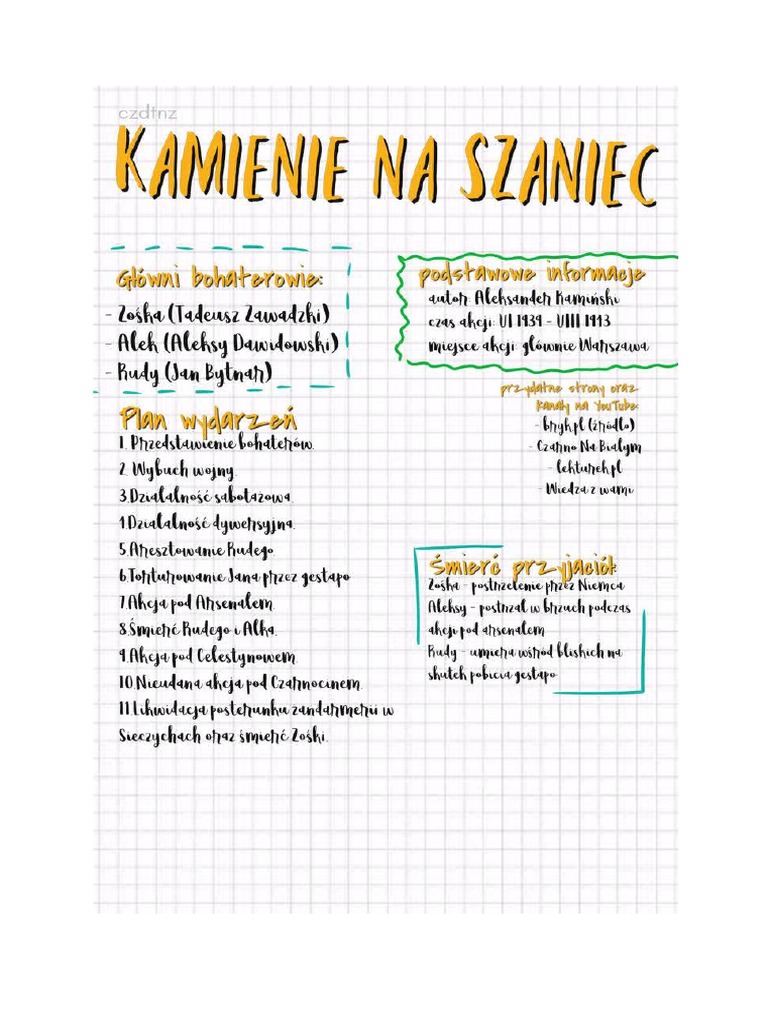 czdtnz
KAMIENIE NA SZANIEC
Główni bohaterowie:
- Zośka (Tadeusz Zawadzki)
- Alek (Aleksy Dawidowski)
- Rudy (Jan Bytnar)
podstawowe informacje
autor: Aleksander Kamiński
czas akcji: VI 1939 - VIII 1943
miejsce akcji: głównie Warszawa
przydatne strony oraz
kanały na YouTube:
- bryk.pl (źródło)
- Czarno Na Białym
- lekturek.pl
- Wiedza z wami
Plan wydarzeń
1. Przedstawienie bohaterów.
2. Wybuch wojny.
3.Działalność sabotażowa.
4.Działalność dywersyjna.
5.Aresztowanie Rudego.
6.Torturowanie Jana przez gestapo
7.Akcja pod Arsenałem.
8.Śmierć Rudego i Alka.
9.Akcja pod Celestynowem.
10.Nieudana akcja pod Czarnocinem.
11.Likwidacja posterunku żandarmerii w
Sieczychach oraz śmierć Zośki.
Śmierć przyjaciół:
Zośka - postrzelenie przez Niemca
Aleksy - postrzał w brzuch podczas
akcji pod arsenałem
Rudy - umiera wśród bliskich na
skutek pobicia gestapo